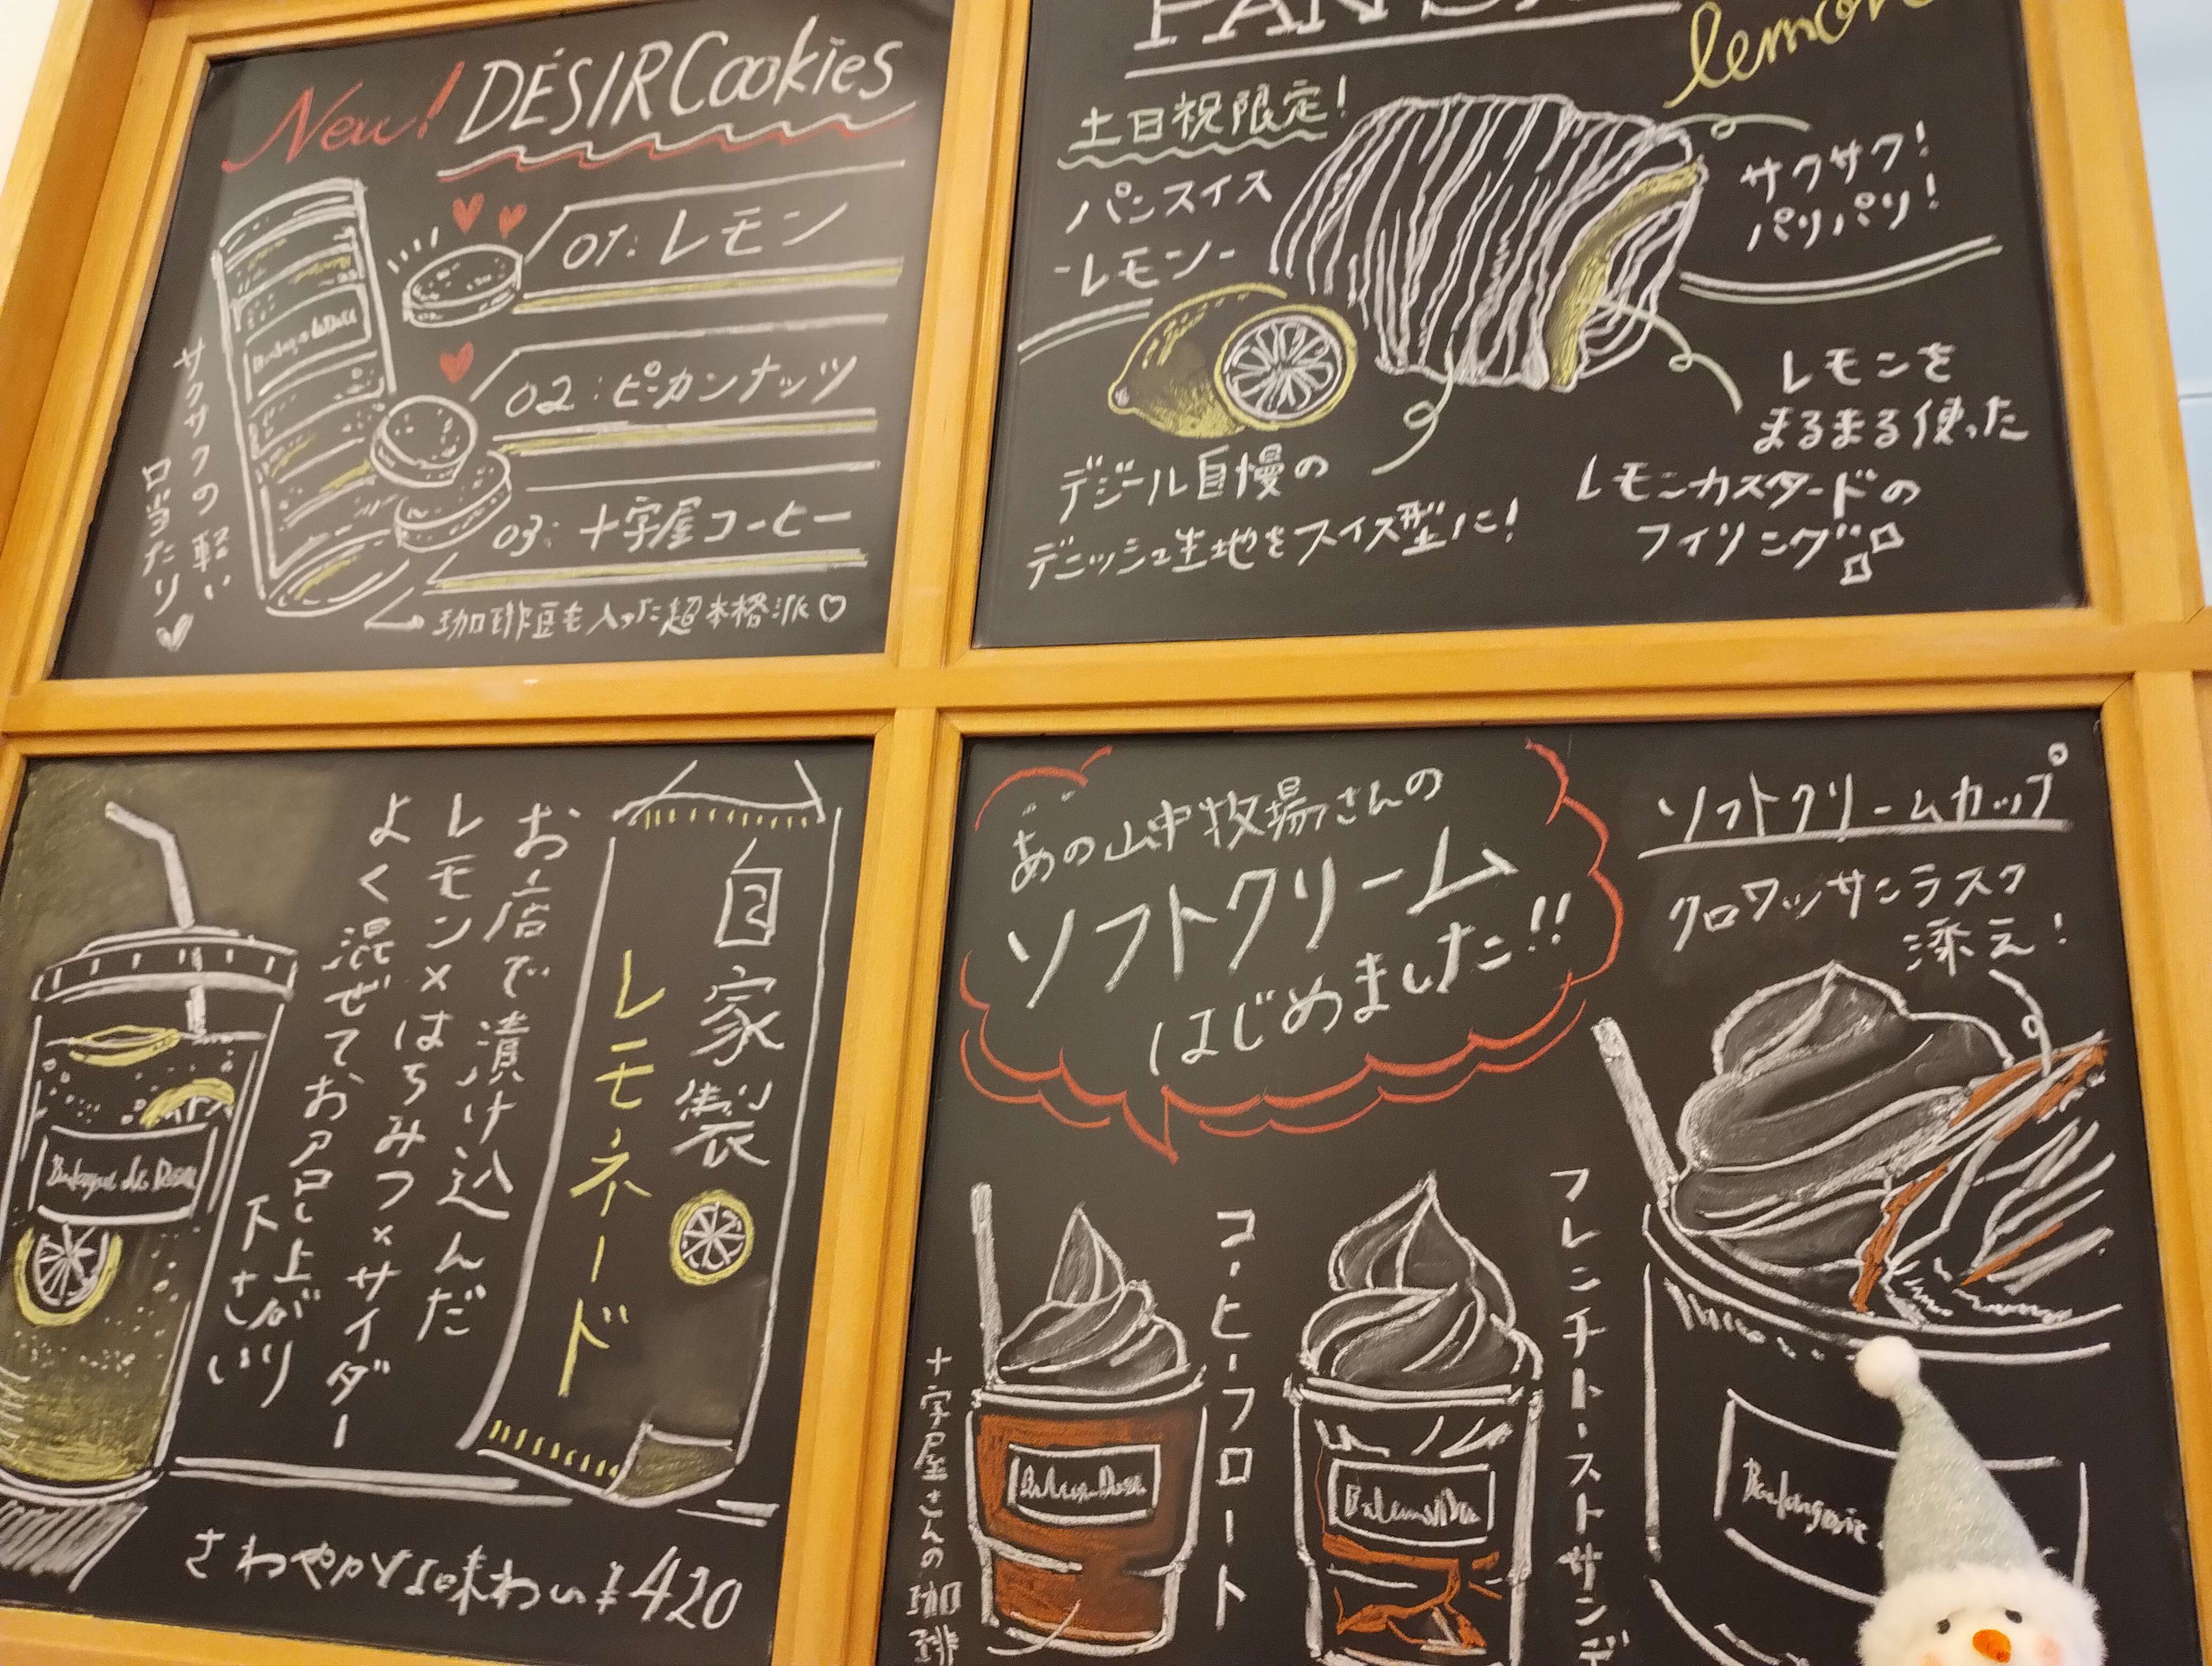 New! DÉSIR Cookies
01:レモン
02:ピーカンナッツ
03:十字屋コーヒー
珈琲豆も入った超本格派♡
サクサクの軽い
口当たり♥
lemon
土日祝限定!
パンスイス
-レモン-
サクサク!
パリパリ!
レモンを
まるまる使った
レモンカスタードの
フィリング
デジール自慢の
デニッシュ生地をスイス型に!
自家製
レモネード
お店で漬け込んだ
レモン×はちみつ×サイダー
よく混ぜてお召し上がり
下さい
さわやかな味わい¥420
あの山中牧場さんの
ソフトクリーム
はじめました!!
ソフトクリームカップ
クロワッサンラスク
添え!
コーヒーフロート
十字屋さんの珈琲
フレンチトーストサンデ
Boulangerie